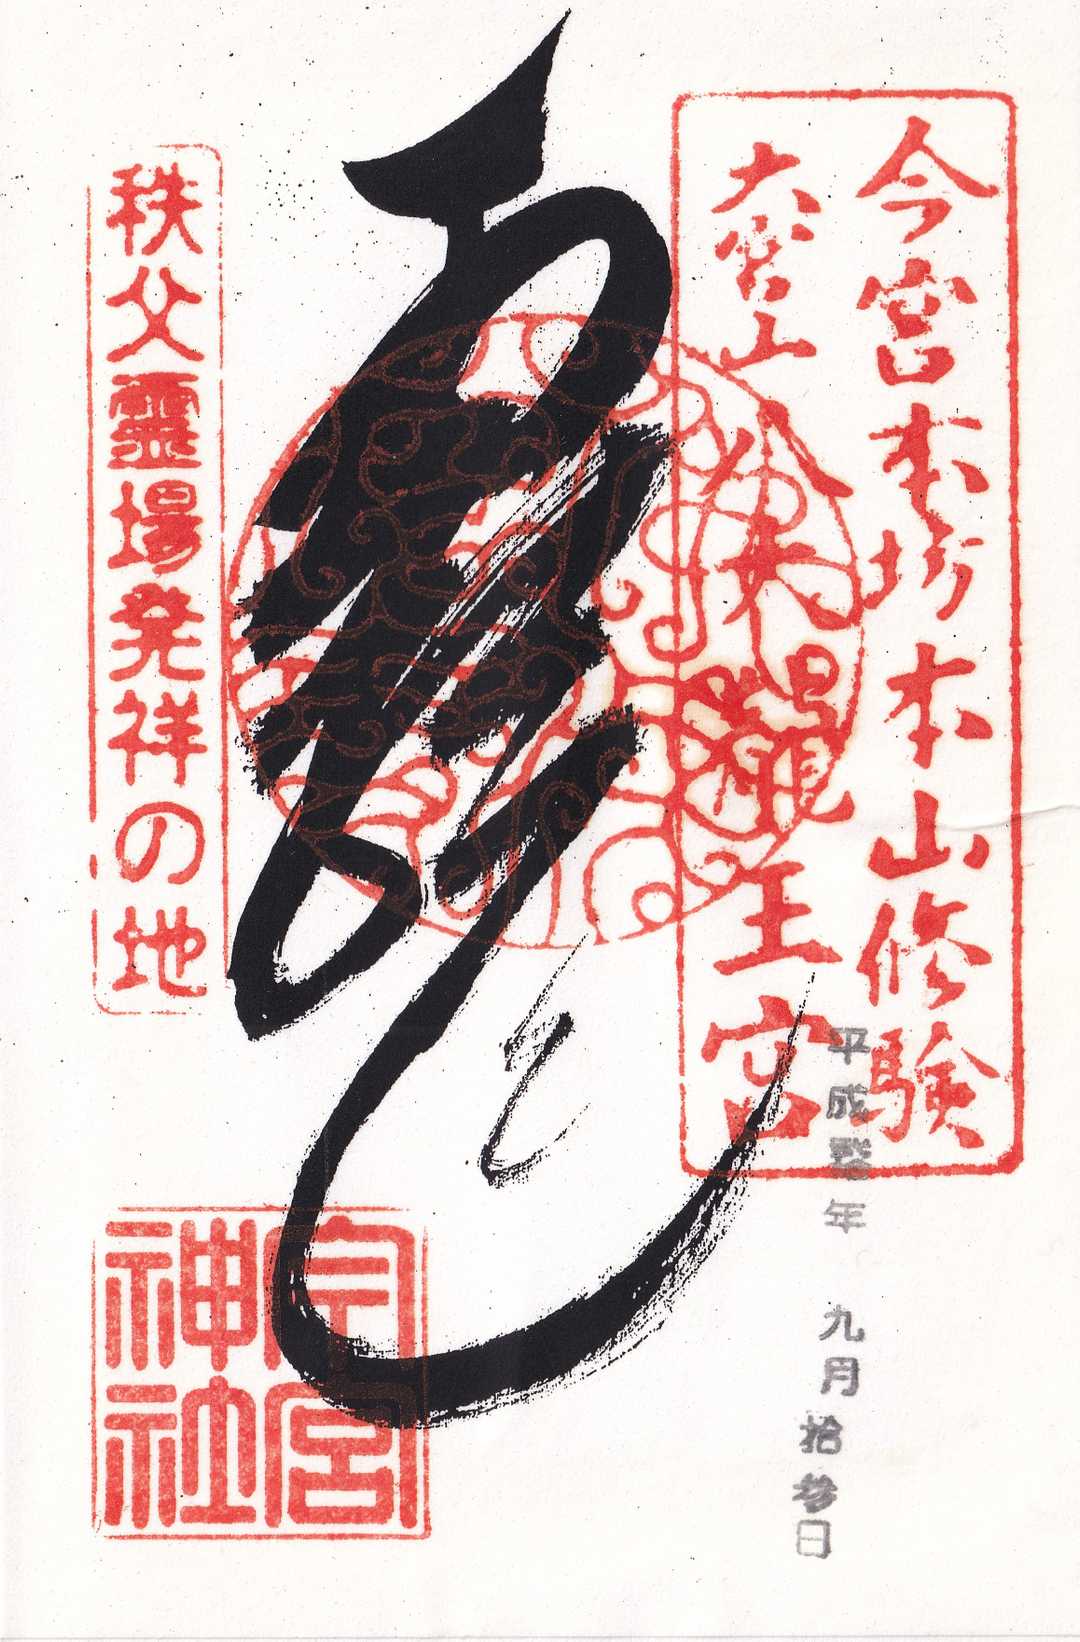 今宮本坊本山修験
大宮山
八大龍王宮
秩父霊場発祥の地
今宮神社
九月拾参日